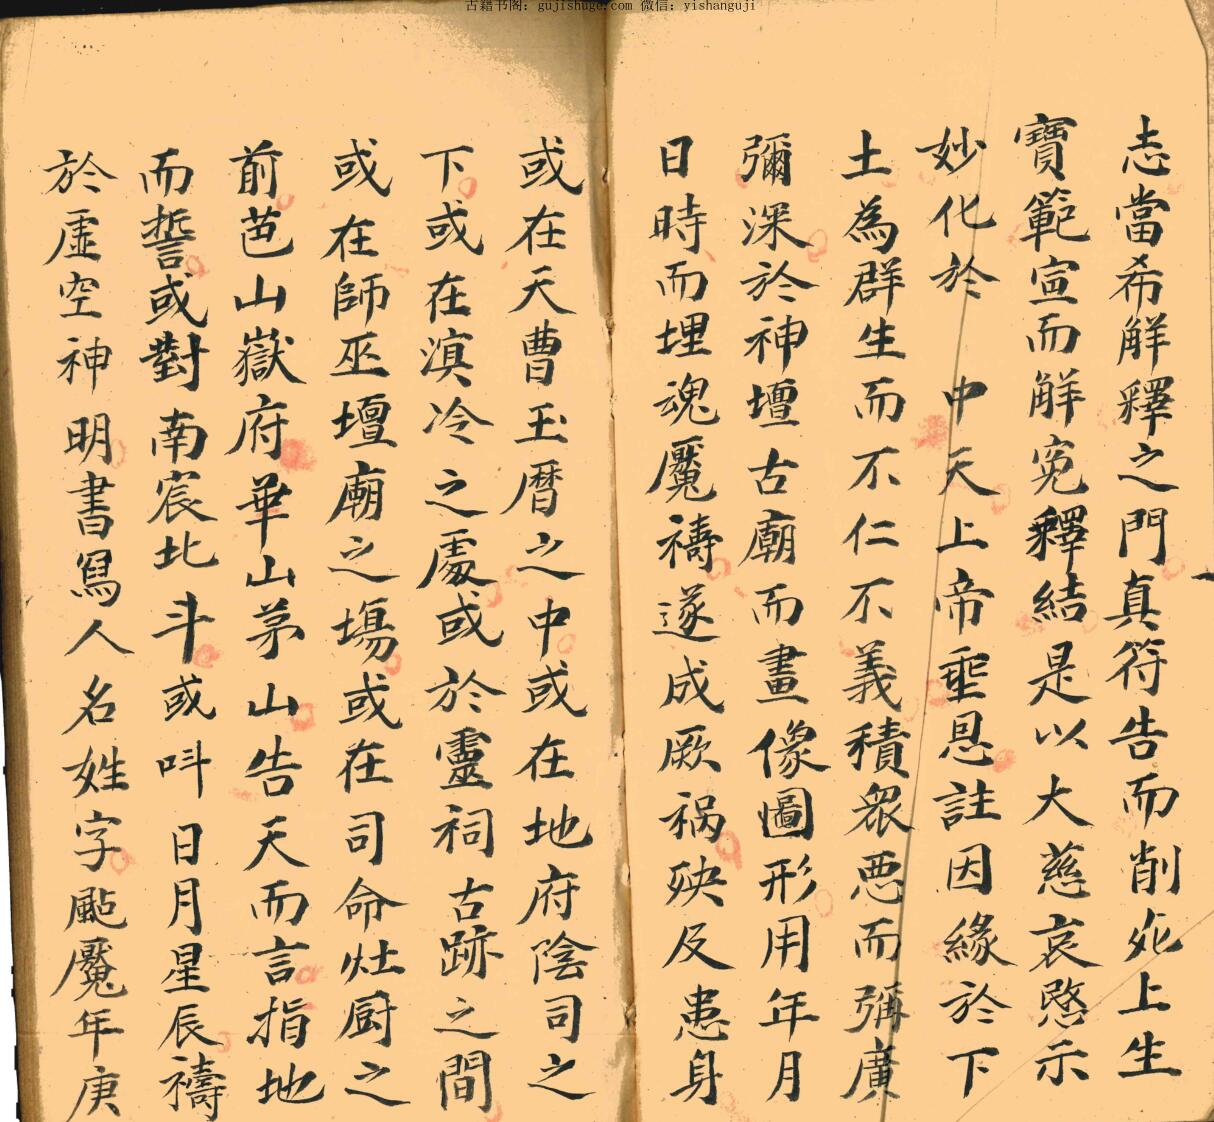 古籍书阁：gujishuge.com 微信：yishanguji
志當希解釋之門真符告而削死上生
寶範宣而解寃釋結是以大慈哀愍示
妙化於　中天上帝垂恩註因緣於下
土為群生而不仁不義積衆悪而彌廣
彌深於神壇古廟而畫像圖形用年月
日時而埋魂魘禱遂成厥祸殃及患身
或在天曹玉曆之中或在地府陰司之
下或在溟冷之處或於靈祠古跡之間
或在師巫壇廟之場或在司命灶厨之
前芭山嶽府華山茅山告天而言指地
而誓或對南宸北斗或呌日月星辰禱
於虛空神明書寫人名姓字魘年庚